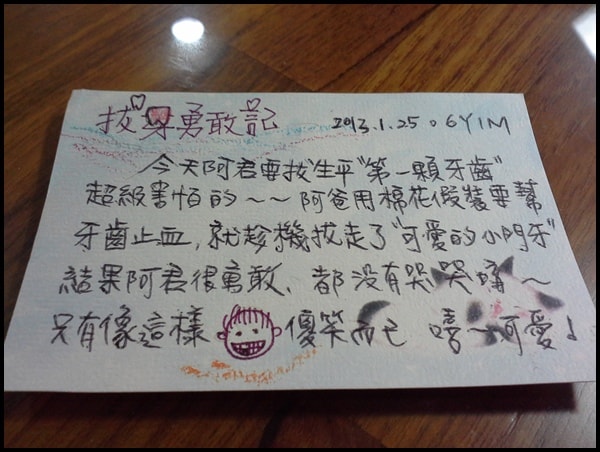 拔牙勇敢記 2013.1.25 。6Y1M
今天阿君要拔"生平"第一顆牙齒"
超級害怕的~~阿爸用棉花假裝要幫
牙齒止血,就趁機拔走了"可愛的小門牙"
結果阿君很勇敢、都沒有哭哭嘀~
只有像這樣 傻笑而已 嘻~可愛!